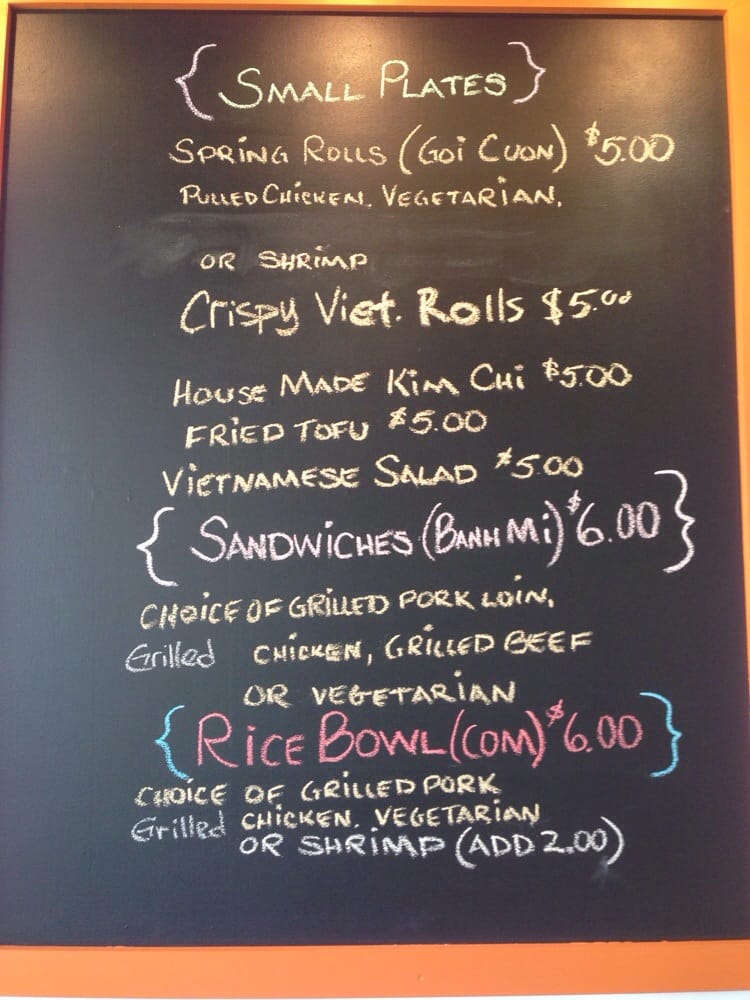 { SMALL PLATES }
SPRING ROLLS (GOI CUON) $5.00
PULLED CHICKEN. VEGETARIAN.
OR SHRIMP
Crispy Viet. Rolls $5.00
HOUSE MADE KIM CHI $5.00
FRIED TOFU $5.00
VIETNAMESE SALAD $5.00
{ SANDWICHES (BANH Mi) $6.00 }
CHOICE OF GRILLED PORK LOIN.
Grilled CHICKEN, GRILLED BEEF
OR VEGETARIAN
{ RICE BOWL (COM) $6.00 }
CHOICE OF GRILLED PORK
Grilled CHICKEN. VEGETARIAN
OR SHRIMP (ADD 2.00)